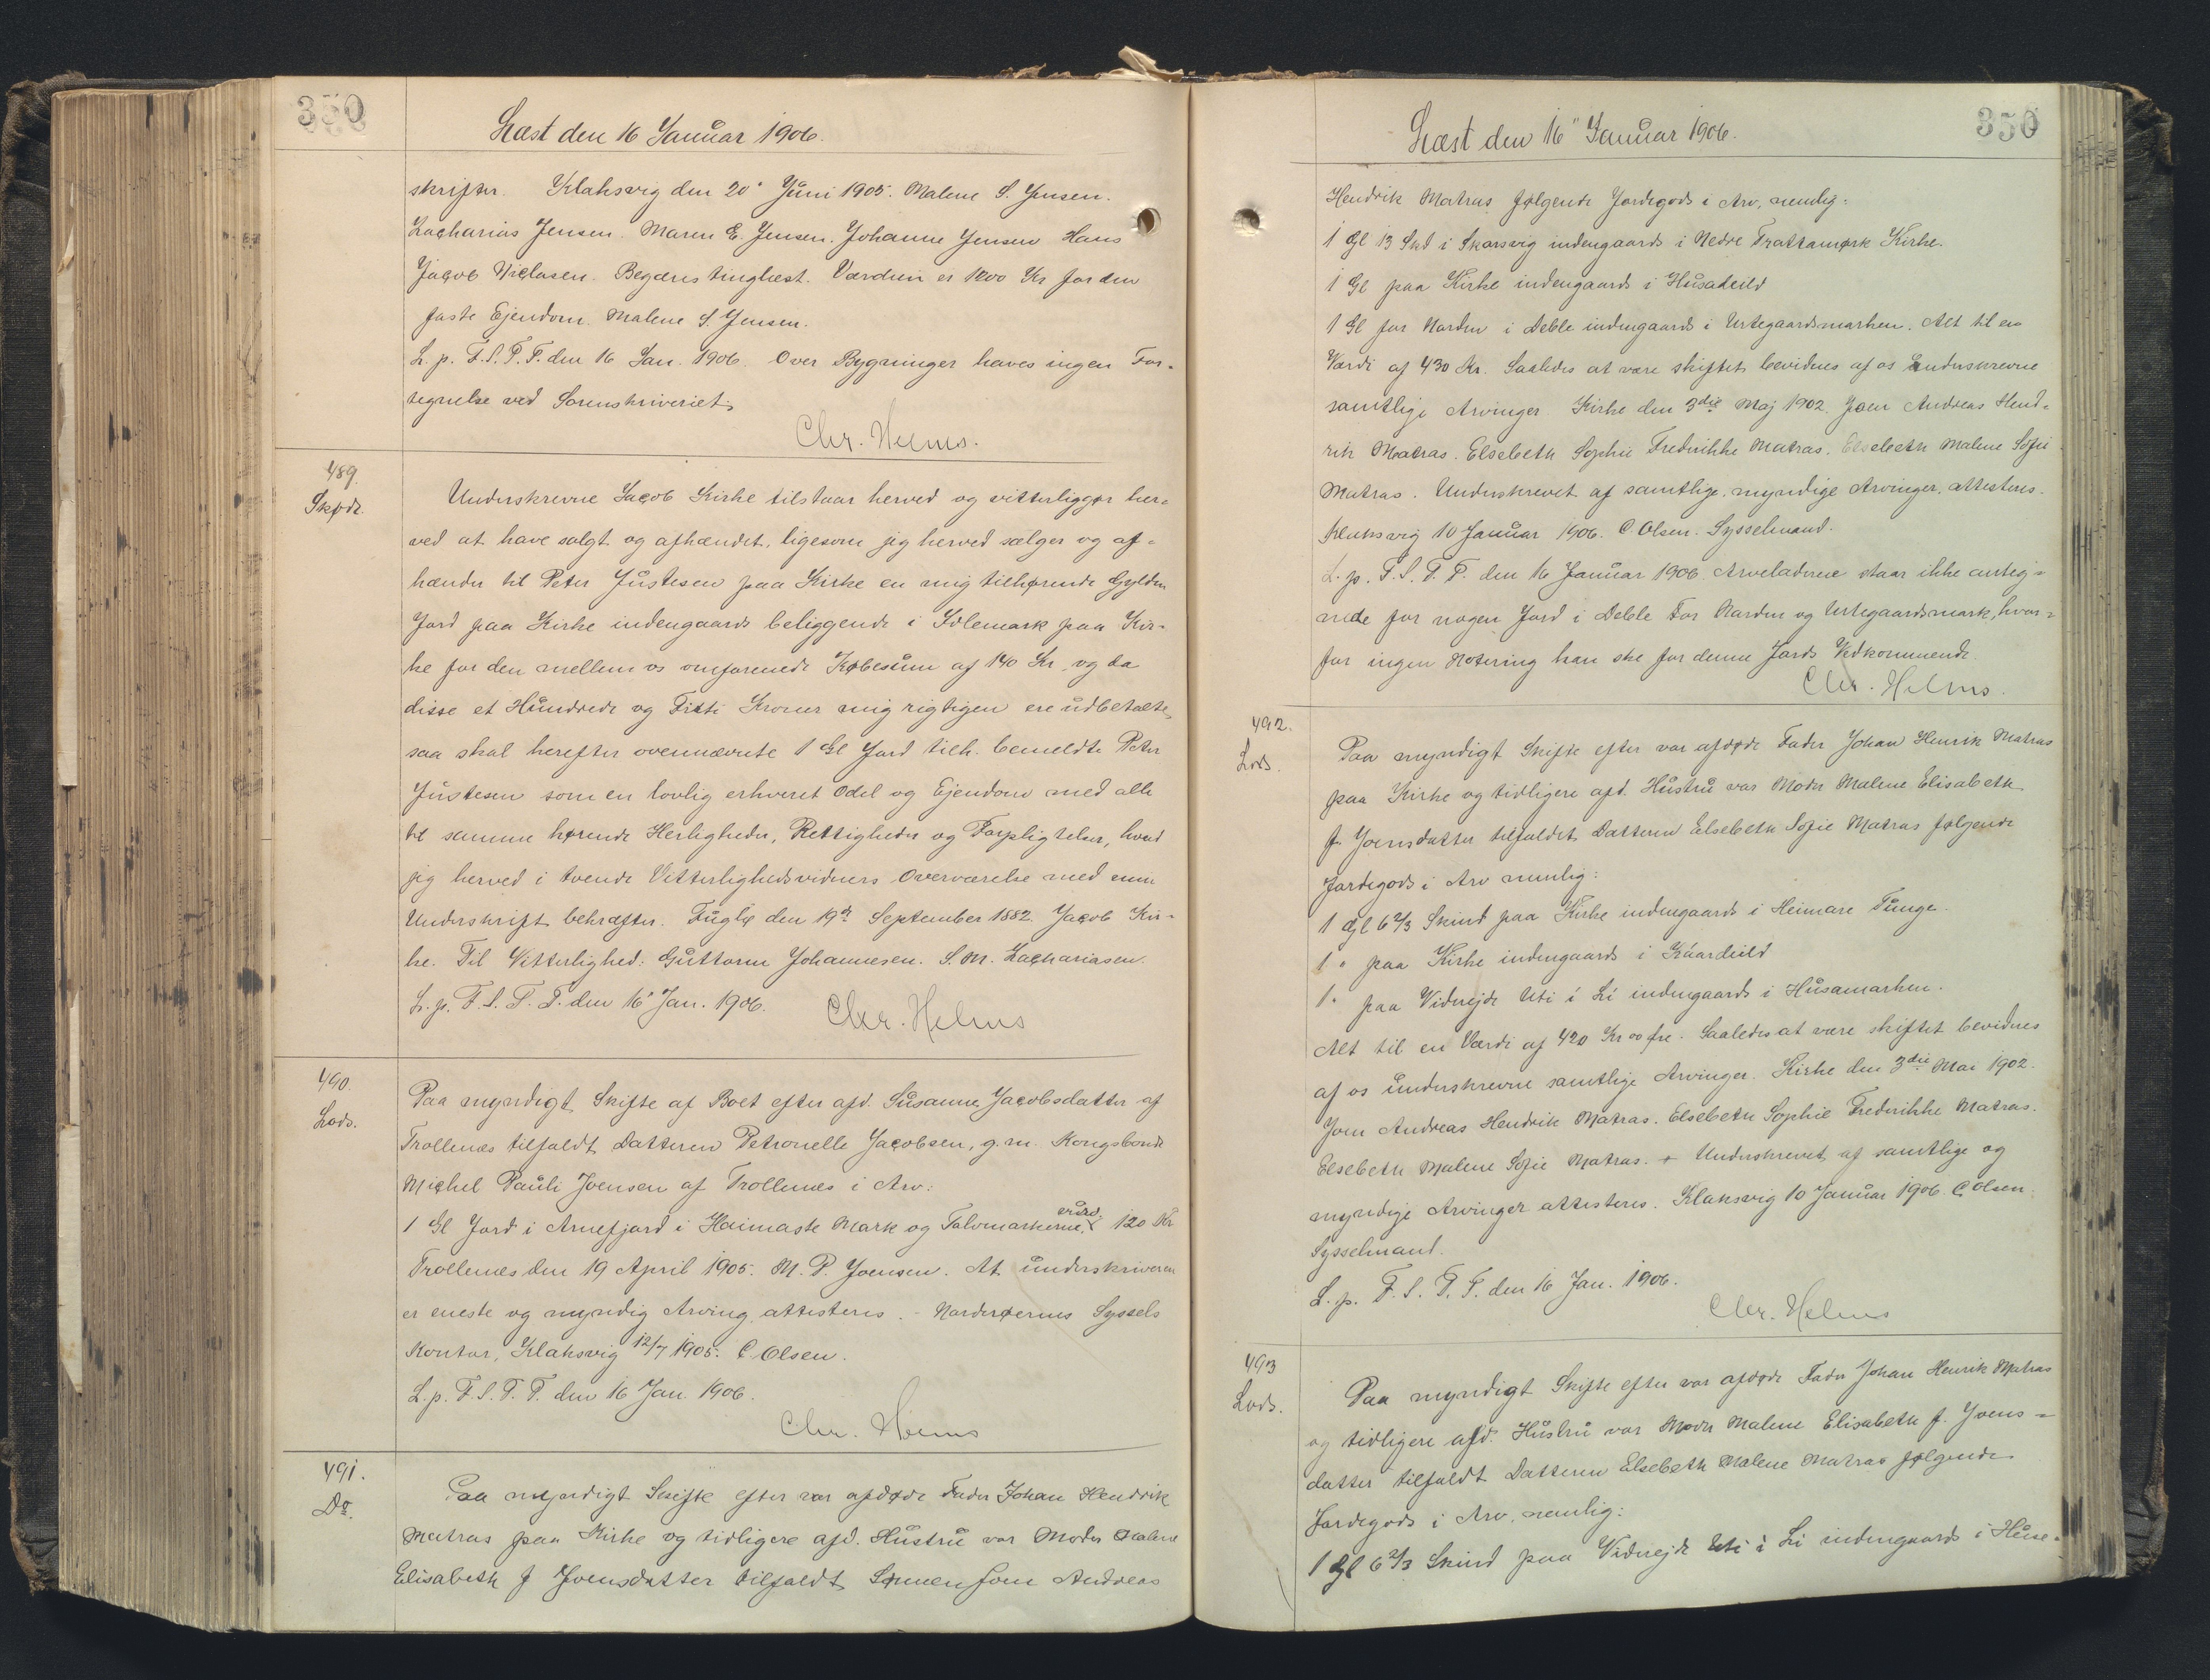 350
Læst den 16 Januar 1906.
skrifter. Klaksvig den 20' Juni 1905. Malene S. Jensen.
Zacharias Jensen. Maren E. Jensen. Johanne Jensen Hans
Jacob Niclasen. Begæres tinglæst. Værdien er 1200 Kr for den
faste Ejendom. Malene S. Jensen.
L. p. F. S. T. F. den 16 Jan. 1906. Over Bygninger haves ingen For-
tegnelse ved Sorenskriveriet.
Chr. Helms.
489.
Skøde.
Underskrevne Jacob Kirke tilstaar herved og vitterliggør her-
ved at have solgt og afhændet, ligesom jeg herved sælger og af-
hænder til Peter Justesen paa Kirke en mig tilhørende Gylden
Jord paa Kirke indengaards beliggende i Idlemark paa Kir-
ke for den mellem os omforenede Købesum af 140 Kr og da
disse et Hundrede og Firti Kroner mig rigtigen ere udbetalte,
saa skal herefter ovennævnte 1 Gl Jord tilh. bemeldte Peter
Justesen som en lovlig erhvervet Odel og Ejendom med alle
til samme hørende Herligheder, Rettigheder og Forpligtelser, hvad
jeg herved i tvende Vitterlighedsvidners Overværelse med min
Underskrift bekræfter. Fuglø den 19de September 1882. Jacob Kir-
ke. Til Vitterlighed: Guttorm Johannesen. S. M. Zachariasen.
L. p. F. S. T. F. den 16' Jan. 1906.
Chr. Helms
490.
Lods.
Paa myndigt Skifte af Boet efter afd. Susanne Jacobsdatter af
Trollenæs tilfaldt Datteren Petronelle Jacobsen, g. m. Kongsbonde
Michel Pauli Joensen af Trollenæs i Arv:
1 Gl Jord i Arnefjord i Haimaste Mark og Talvmarkerne, værd. 120 Kr
Trollenæs den 19 April 1905. M. P. Joensen. At underskriveren
er eneste og myndig Arving attesteres. - Norderøernes Syssels
Kontor, Klaksvig 12/7 1905. C. Olsen.
L. p. F. S. T. F. den 16 Jan. 1906.
Chr. Helms
491.
Do.
Paa myndigt Skifte efter vor afdøde Fader Johan Hendrik
Matras paa Kirke og tidligere afd. Hustru vor Moder Malene
Elisabeth f Joensdatter tilfaldt Sønnen Joen Andreas
350
Læst den 16" Januar 1906.
Hendrik Matras følgende Jordegods i Arv, nemlig:
1 Gl 13 Skd i Skarsvig indengaards i Nedre Trattamørk Kirke.
1 Gl paa Kirke indengaards i Husadeild
1 Gl for Norden i Deble indengaards i Urtegaardsmarken. Alt til en
Værdi af 430 Kr. Saaledes at være skiftet bevidnes af os underskrevne
samtlige Arvinger Kirke den 3die Maj 1902. Joen Andreas Hend-
rik Matras. Elsebeth Sophie Fredrikke Matras. Elsebeth Malene Sofie
Matras. Underskrevet af samtlige, myndige Arvinger, attesteres.
Klaksvig 10 Januar 1906. C. Olsen. Sysselmand.
L. p. F. S. T. F. den 16 Januar 1906. Arveladerne staar ikke anteg-
nede for nogen Jord i Deble For Norden og Urtegaardsmark, hvor-
for ingen Notering kan ske for denne Jords Vedkommende.
Chr. Helms.
492.
Lods.
Paa myndigt Skifte efter vor afdøde Fader Johan Henrik Matras
paa Kirke og tidligere afd. Hustru vor Moder Malene Elisabeth
f. Joensdatter tilfaldt Datteren Elsebeth Sofie Matras følgende
Jordegods i Arv nemlig:
1 Gl 6 2/3 Skind paa Kirke indengaards i Heimare Tunge.
1 " paa Kirke indengaards i Káardeild
1 " paa Viderejde Uti i Li indengaards i Husamarken.
Alt til en Værdi af 420 Kr 00 Øre. Saaledes at være skiftet bevidnes
af os underskrevne samtlige Arvinger. Kirke den 3die Mai 1902.
Joen Andreas Hendrik Matras. Elsebeth Sophie Fredrikke Matras.
Elsebeth Malene Sofie Matras. + Underskrevet af samtlige og
myndige Arvinger attesteres. Klaksvig 10 Januar 1906. C. Olsen.
Sysselmand.
L. p. F. S. T. F. den 16 Jan. 1906.
Chr. Helms
493
Lods.
Paa myndigt Skifte efter vor afdøde Fader Johan Henrik Matras
og tidligere afd. Hustru vor Moder Malene Elisabeth f. Joens-
datter tilfaldt Datteren Elsebeth Malene Matras følgende
Jordegods i Arv, nemlig:
1 Gl 6 2/3 Skind paa Viderejde Uti i Li indengaards i Huse-